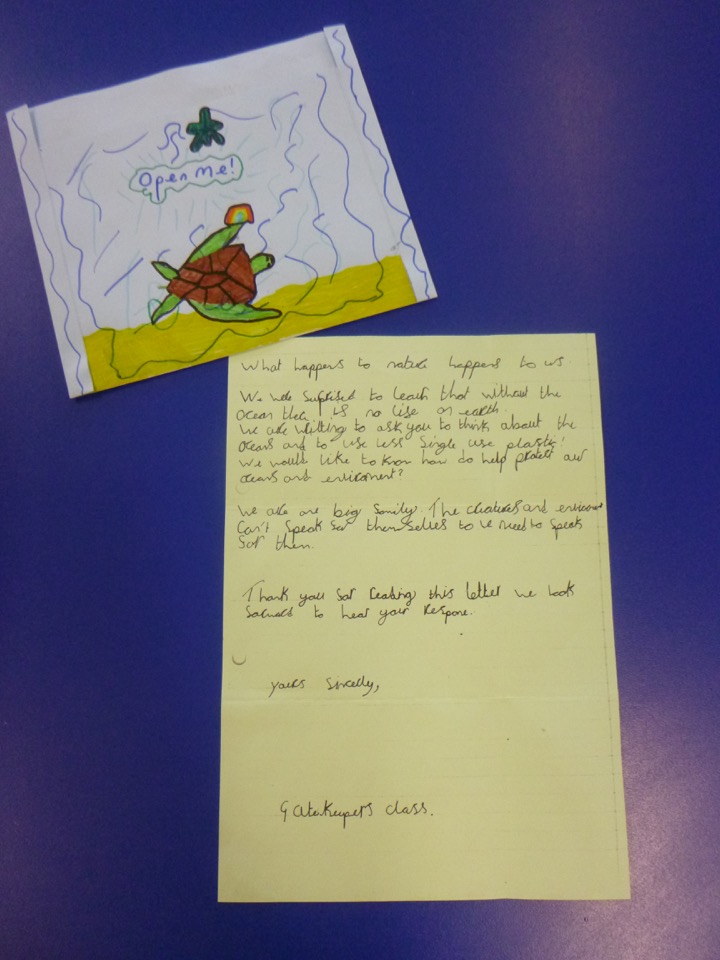 Open Me!
What happens to nature happens to us
We were suprised to learn that without the
ocean ther is no life on earth.
We are writting to ask you to think about the
oceans and to use less single use plastic!
We would like to know how do help protect our
oceans and enviroment?
We are are big family. The creatures and enviroment
can't speak for themselfes so we need to speak
for them.
Thank you for reading this letter we look
forward to hear your respone.
yours sincelly,
Gatekeepers class.